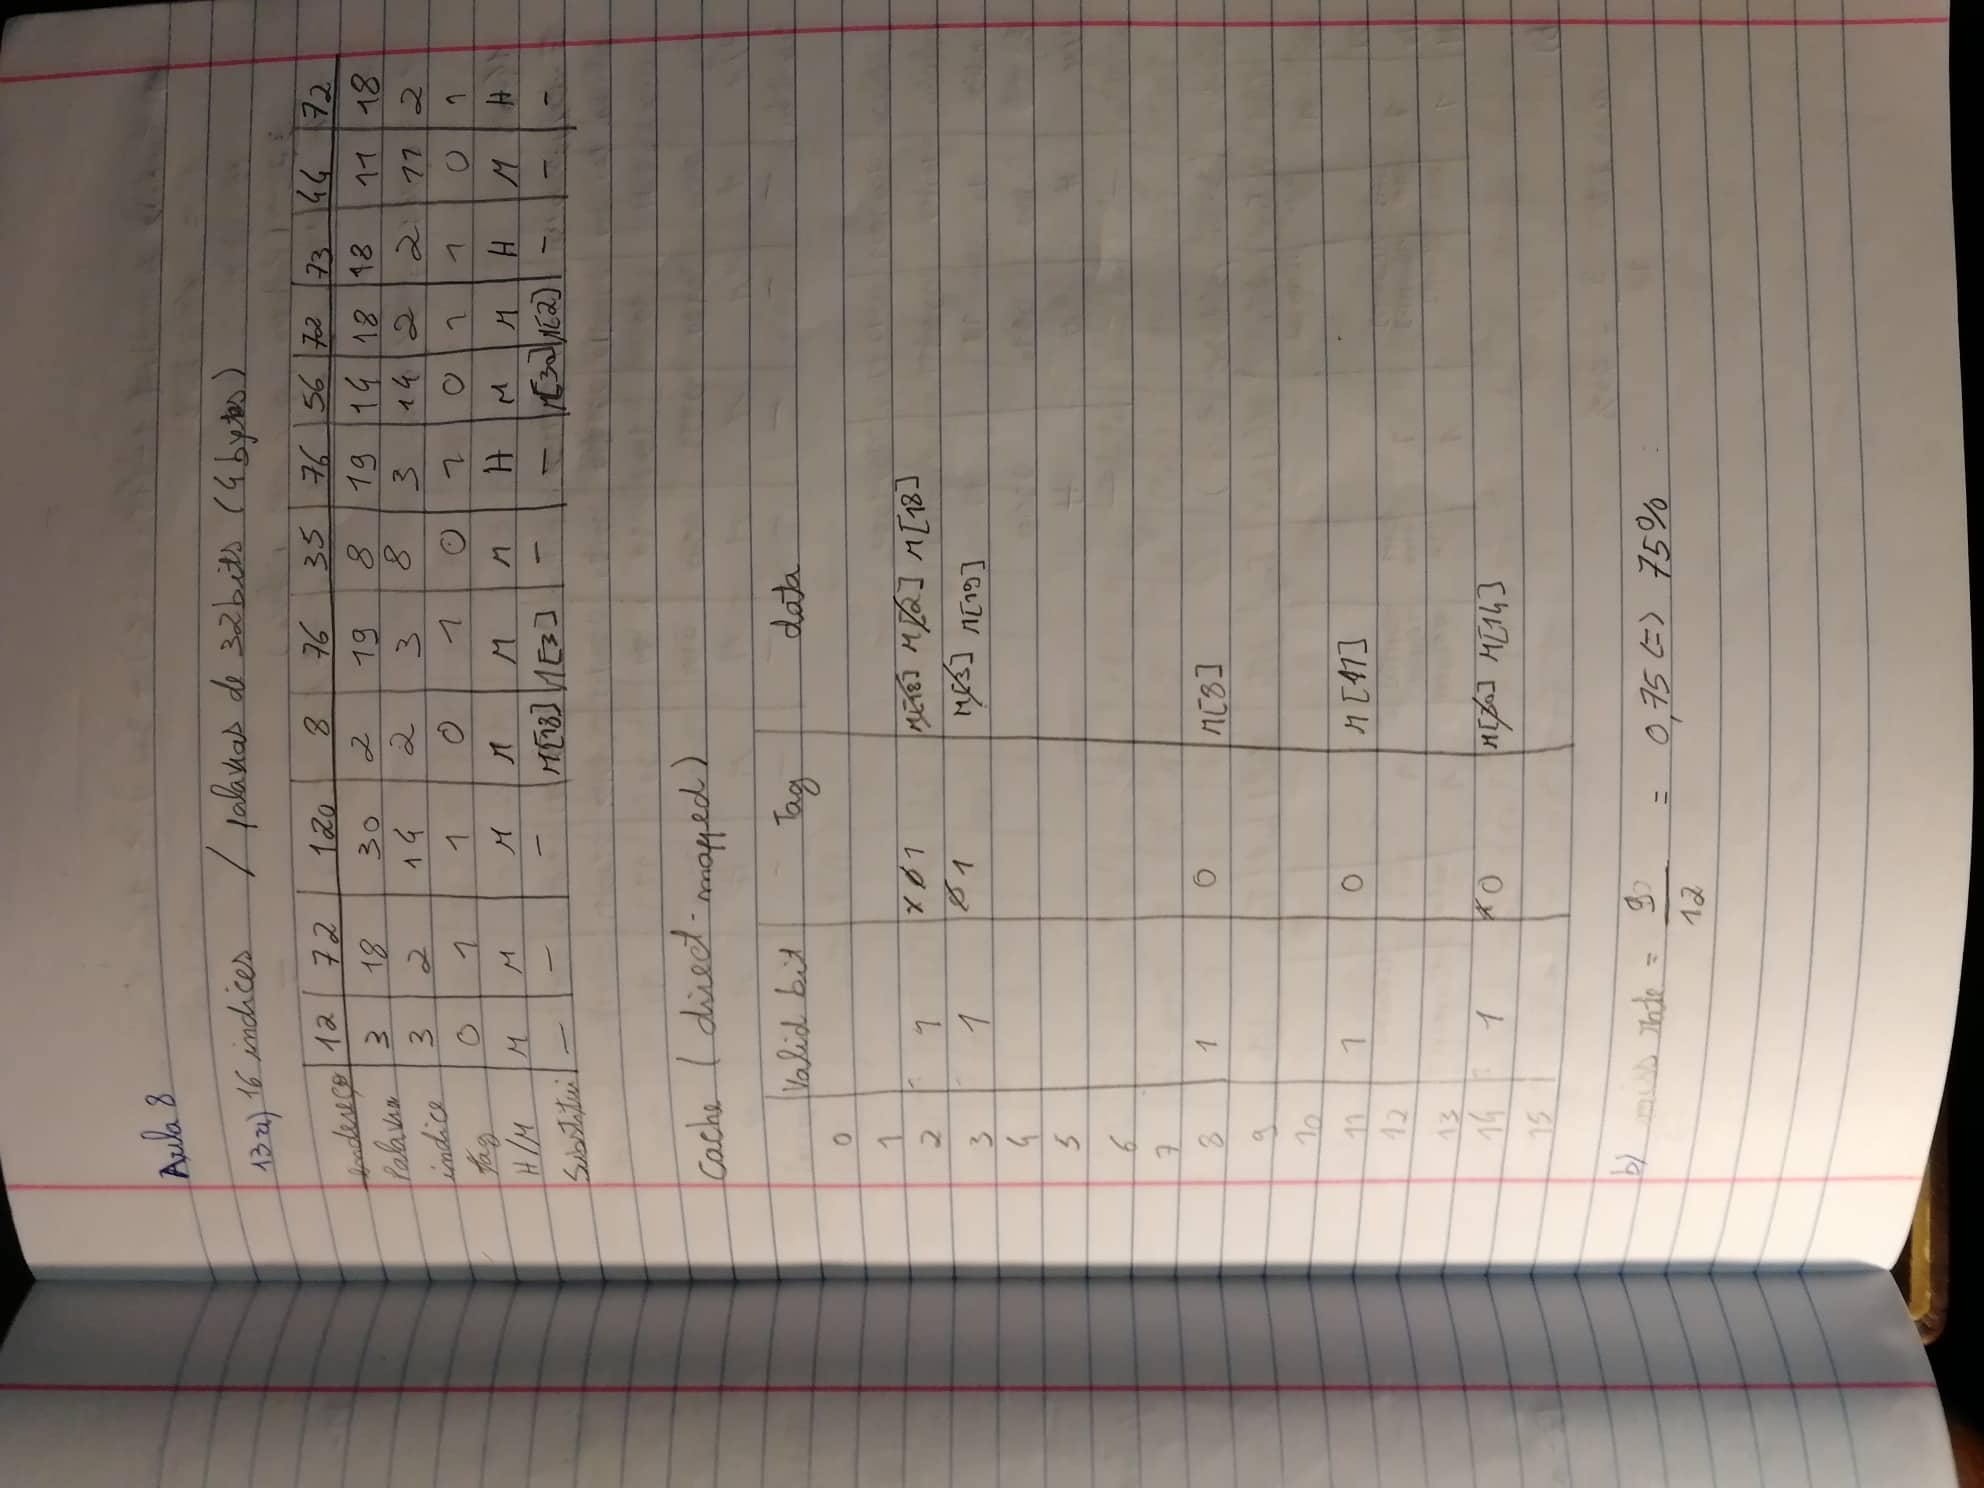 Aula 8
13a) 16 indices / palavras de 32bits (4bytes)
Endereço | 12 | 72 | 120 | 8 | 76 | 35 | 76 | 56 | 72 | 73 | 44 | 72
Palavra | 3 | 18 | 30 | 2 | 19 | 8 | 19 | 14 | 18 | 18 | 11 | 18
indice | 3 | 2 | 14 | 2 | 3 | 8 | 3 | 14 | 2 | 2 | 11 | 2
Tag | 0 | 1 | 1 | 0 | 1 | 0 | 1 | 0 | 1 | 1 | 0 | 1
H/M | M | M | M | M | M | M | H | M | M | H | M | H
Substitui | - | - | - | M[18] | M[3] | - | - | M[30] | M[2] | - | - | -
Cache (direct-mapped)
Valid bit | Tag | data
0
1
2 | 1 | 1 0 1 | M[18] M[2] M[18]
3 | 1 | 0 1 | M[3] M[19]
4
5
6
7
8 | 1 | 0 | M[8]
9
10
11 | 1 | 0 | M[11]
12
13
14 | 1 | 1 0 | M[30] M[14]
15
b) miss rate = 9/12 = 0,75 <=> 75%